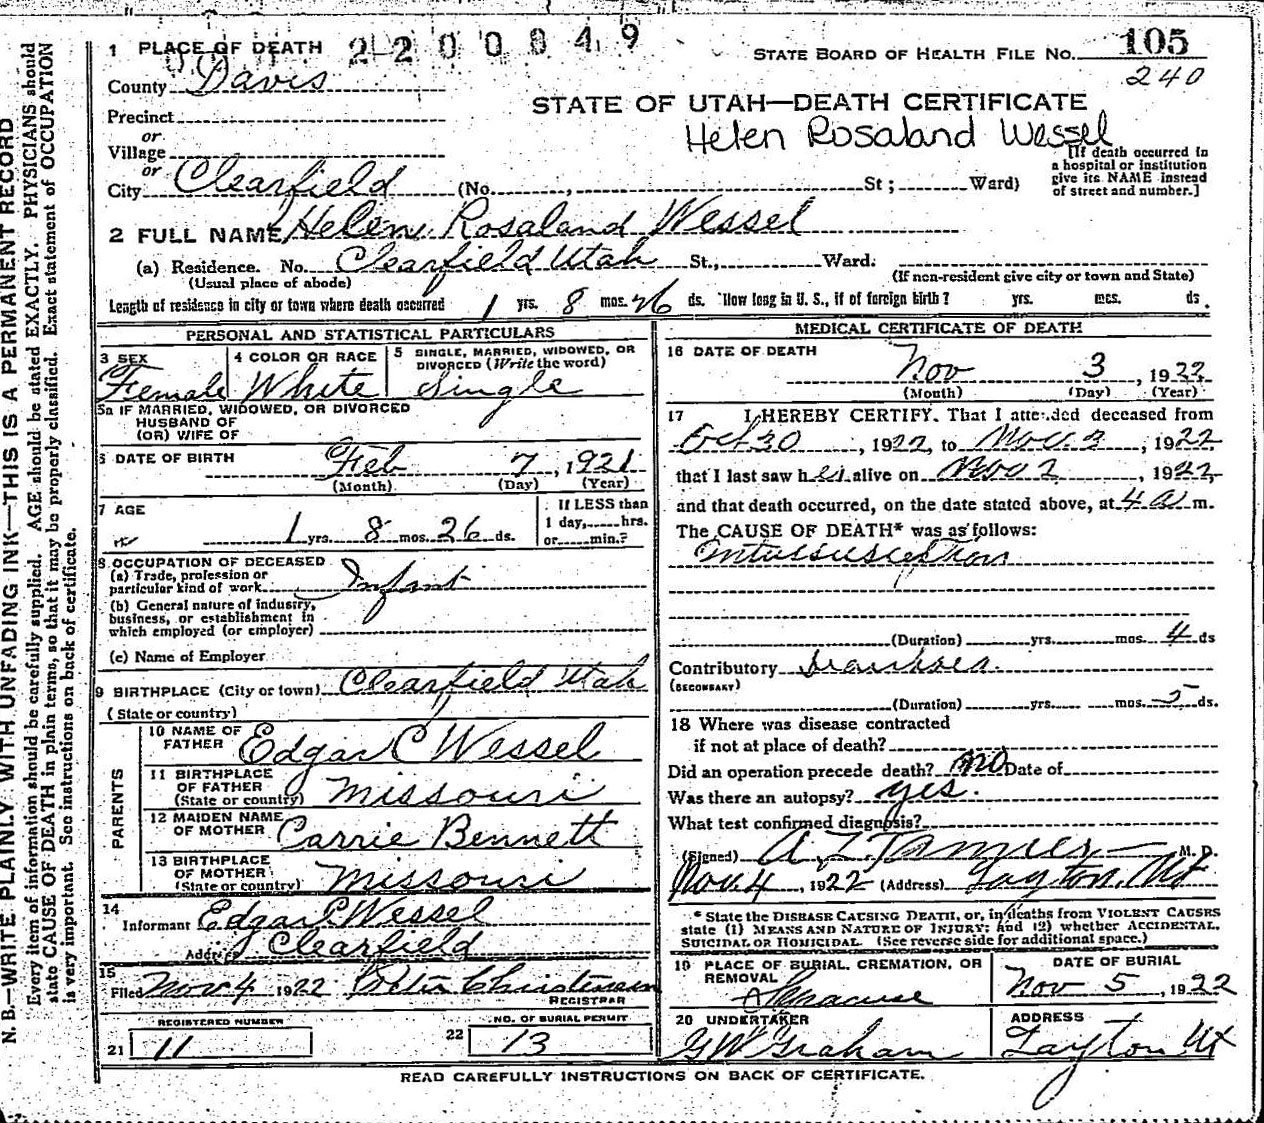 1 PLACE OF DEATH 2200849
STATE BOARD OF HEALTH FILE No. 105
County Davis
240
STATE OF UTAH—DEATH CERTIFICATE
Precinct
Helen Rosaland Wessel
or
Village
or
City Clearfield (No. , St; Ward)
[If death occurred in
a hospital or institution
give its NAME instead
of street and number.]
2 FULL NAME Helen Rosaland Wessel
(a) Residence. No. Clearfield Utah St., Ward.
(Usual place of abode)
(If non-resident give city or town and State)
Length of residence in city or town where death occurred 1 yrs. 8 mos. 26 ds. How long in U. S., if of foreign birth? yrs. mos. ds.
PERSONAL AND STATISTICAL PARTICULARS
3 SEX
Female
4 COLOR OR RACE
White
5 SINGLE, MARRIED, WIDOWED, OR
DIVORCED (Write the word)
Single
5a IF MARRIED, WIDOWED, OR DIVORCED
HUSBAND OF
(OR) WIFE OF
6 DATE OF BIRTH Feb 7, 1921
(Month) (Day) (Year)
7 AGE
1 yrs. 8 mos. 26 ds.
If LESS than
1 day, hrs.
or min.?
8 OCCUPATION OF DECEASED
(a) Trade, profession or
particular kind of work Infant
(b) General nature of industry,
business, or establishment in
which employed (or employer)
(c) Name of Employer
9 BIRTHPLACE (City or town) Clearfield Utah
(State or country)
PARENTS
10 NAME OF
FATHER Edgar C Wessel
11 BIRTHPLACE
OF FATHER
(State or country) Missouri
12 MAIDEN NAME
OF MOTHER Carrie Bennett
13 BIRTHPLACE
OF MOTHER
(State or country) Missouri
14
Informant Edgar C Wessel
Address Clearfield
15
Filed Nov 4 1922 Christensen
REGISTRAR
REGISTERED NUMBER
21 11
NO. OF BURIAL PERMIT
22 13
MEDICAL CERTIFICATE OF DEATH
16 DATE OF DEATH
Nov 3, 1922
(Month) (Day) (Year)
17 I HEREBY CERTIFY, That I attended deceased from
Oct 30, 1922, to Nov. 3, 1922
that I last saw her alive on Nov 2, 1922,
and that death occurred, on the date stated above, at 4 a m.
The CAUSE OF DEATH* was as follows:
Intussusception
(Duration) yrs. mos. 4 ds
Contributory Diarrhoea.
(SECONDARY)
(Duration) yrs. mos. 5 ds.
18 Where was disease contracted
if not at place of death?
Did an operation precede death? no Date of
Was there an autopsy? yes.
What test confirmed diagnosis?
(Signed) A. Z. Tanner M. D.
Nov. 4, 1922 (Address) Layton, Ut
* State the DISEASE CAUSING DEATH, or, in deaths from VIOLENT CAUSES
state (1) MEANS AND NATURE OF INJURY; and (2) whether ACCIDENTAL,
SUICIDAL OR HOMICIDAL. (See reverse side for additional space.)
19 PLACE OF BURIAL, CREMATION, OR
REMOVAL
Syracuse
DATE OF BURIAL
Nov 5, 1922
20 UNDERTAKER
G W Graham
ADDRESS
Layton Ut
READ CAREFULLY INSTRUCTIONS ON BACK OF CERTIFICATE.
N. B.—WRITE PLAINLY WITH UNFADING INK—THIS IS A PERMANENT RECORD
Every item of information should be carefully supplied. AGE should be stated EXACTLY. PHYSICIANS should
state CAUSE OF DEATH in plain terms, so that it may be properly classified. Exact statement of OCCUPATION
is very important. See instructions on back of certificate.